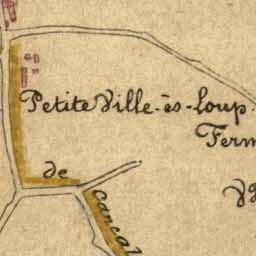 Petite Ville-ès-Loup
Ferm
de
Cancal